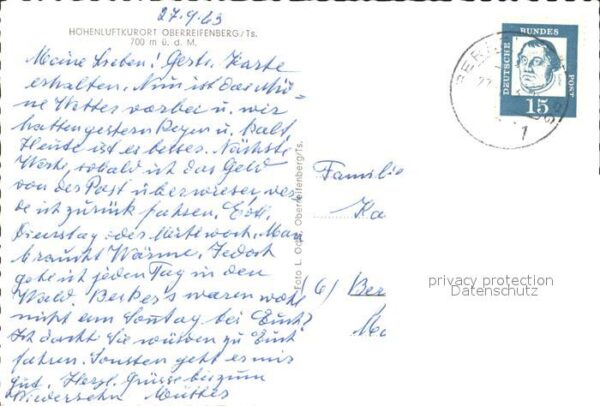 27.9.63
HÖHENLUFTKURORT OBERREIFENBERG/Ts.
700 m ü. d. M.
Meine Lieben! Gestr. Karte
erhalten. Nun ist das schö-
ne Wetter vorbei u. wir
hatten gestern Regen u. kalt.
Heute ist es besser. Nächste
Woche, sobald ich das Geld
von der Post überwiesen, wer-
de ich zurück fahren. Evtl.
Dienstag oder Mittwoch. Man
braucht Wärme. Jedoch
gehe ich jeden Tag in den
Wald. Becker's waren wohl
nicht am Sonntag bei Euch?
Ich dachte Sie wüssen zu Euch
fahren. Sonsten geht es mir
gut. Herzl. Grüsse bis zum
Wiedersehn Mutter
Foto L. Ochs, Oberreifenberg/Ts.
DEUTSCHE BUNDES POST
15
1
Familie
Ka
(6) Ber
privacy protection
Datenschutz